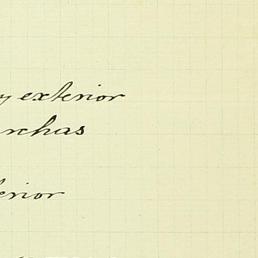 y exterior
rchas
erior